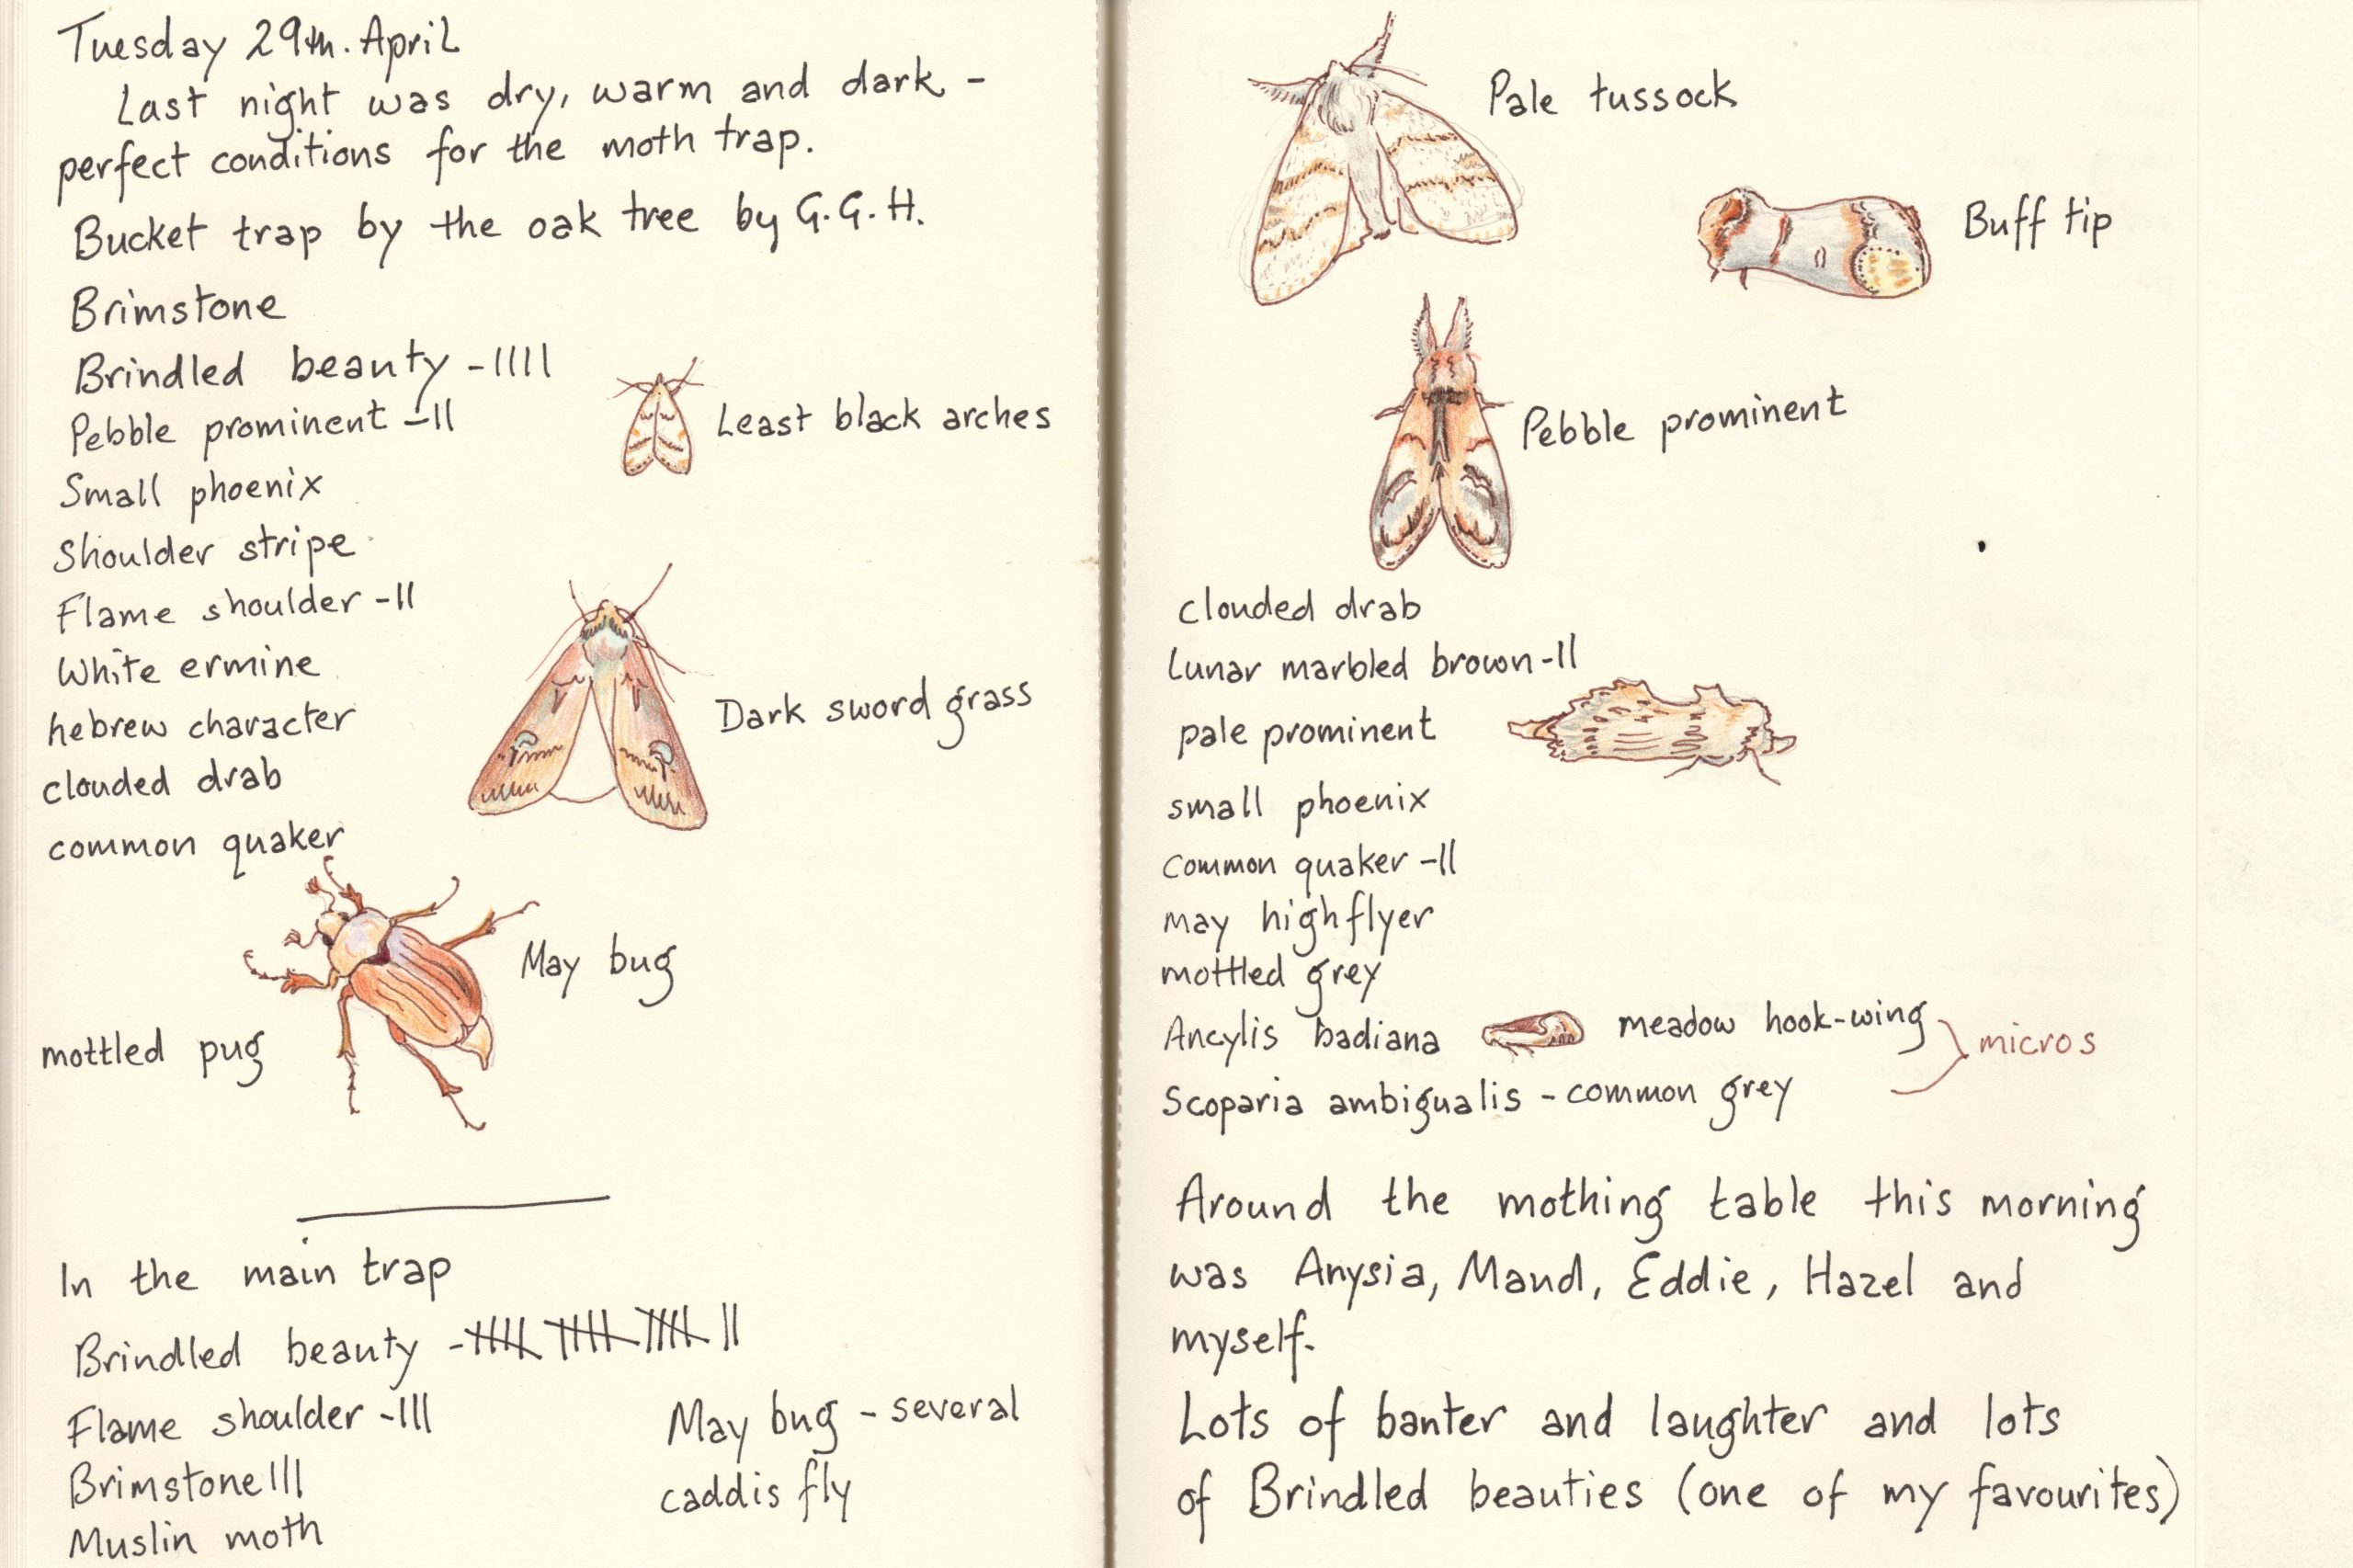 Tuesday 29th. April
Last night was dry, warm and dark -
perfect conditions for the moth trap.
Bucket trap by the oak tree by G.G.H.
Brimstone
Brindled beauty - IIII
Pebble prominent - II
Least black arches
Small phoenix
Shoulder stripe
Flame shoulder - II
White ermine
hebrew character
Dark sword grass
clouded drab
common quaker
May bug
mottled pug
In the main trap
Brindled beauty - IIIII IIIII IIIII II
Flame shoulder - III
Brimstone III
Muslin moth
May bug - several
caddis fly
Pale tussock
Buff tip
Pebble prominent
clouded drab
Lunar marbled brown - II
pale prominent
small phoenix
common quaker - II
may highflyer
mottled grey
Ancylis badiana meadow hook-wing
micros
Scoparia ambigualis - common grey
Around the mothing table this morning
was Anysia, Maud, Eddie, Hazel and
myself.
Lots of banter and laughter and lots
of Brindled beauties (one of my favourites)